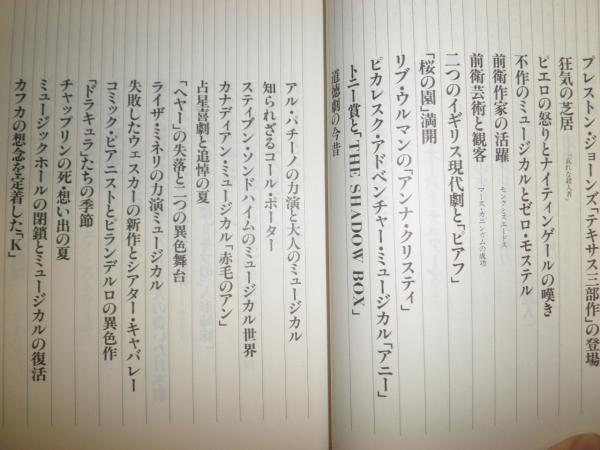 プレストン・ジョーンズ「テキサス三部作」の登場
狂気の芝居
ピエロの怒りとナイティンゲールの嘆き
不作のミュージカルとゼロ・モステル
前衛作家の活躍
前衛芸術と観客
マース・カニンガムの成功
二つのイギリス現代劇と「ピアフ」
「桜の園」満開
リブ・ウルマンの「アンナ・クリスティ」
ピカレスク・アドベンチャー・ミュージカル「アニー」
トニー賞と「THE SHADOW BOX」
道徳劇の今昔
アル・パチーノの力演と大人のミュージカル
知られざるコール・ポーター
スティブン・ソンドハイムのミュージカル世界
カナディアン・ミュージカル「赤毛のアン」
占星喜劇と追悼の夏
「ヘヤー」の失落と二つの異色舞台
ライザ・ミネリの力演ミュージカル
失敗したウェスカーの新作とシアター・キャバレー
コミック・ピアニストとピランデルロの異色作
「ドラキュラ」たちの季節
チャップリンの死・想い出の夏
ミュージックホールの閉鎖とミュージカルの復活
カフカの想念を定着した「K」